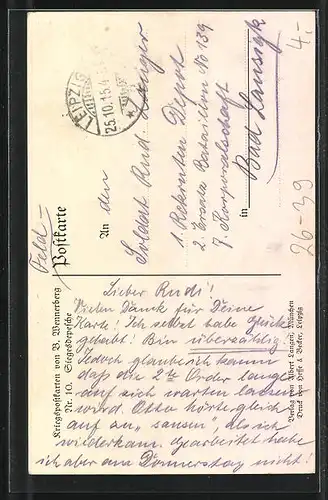 Feld-
Postkarte
LEIPZIG
25.10.15.4
An den
Soldat Rud.
1. Rekruten Depot
2. Ersatz Bataillon No 139
7. Korporalschaft
in Bad Lausigk
4.-
26-39
Kriegspostkarten von B. Wennerberg
Nr. 10. Siegesdepesche
Verlag von Albert Langen, München
Druck von Hesse & Becker, Leipzig
Lieber Rudi!
Vielen Dank für Deine
Karte! Ich selbst habe
gehabt! Bin überzählig.
Jedoch glaube ich kaum
daß die 2te Order lange
auf sich warten lassen
wird. Otto hörte gleich
auf zu „sausen“, als ich
wiederkam. Gearbeitet habe
ich aber am Donnerstag nicht!